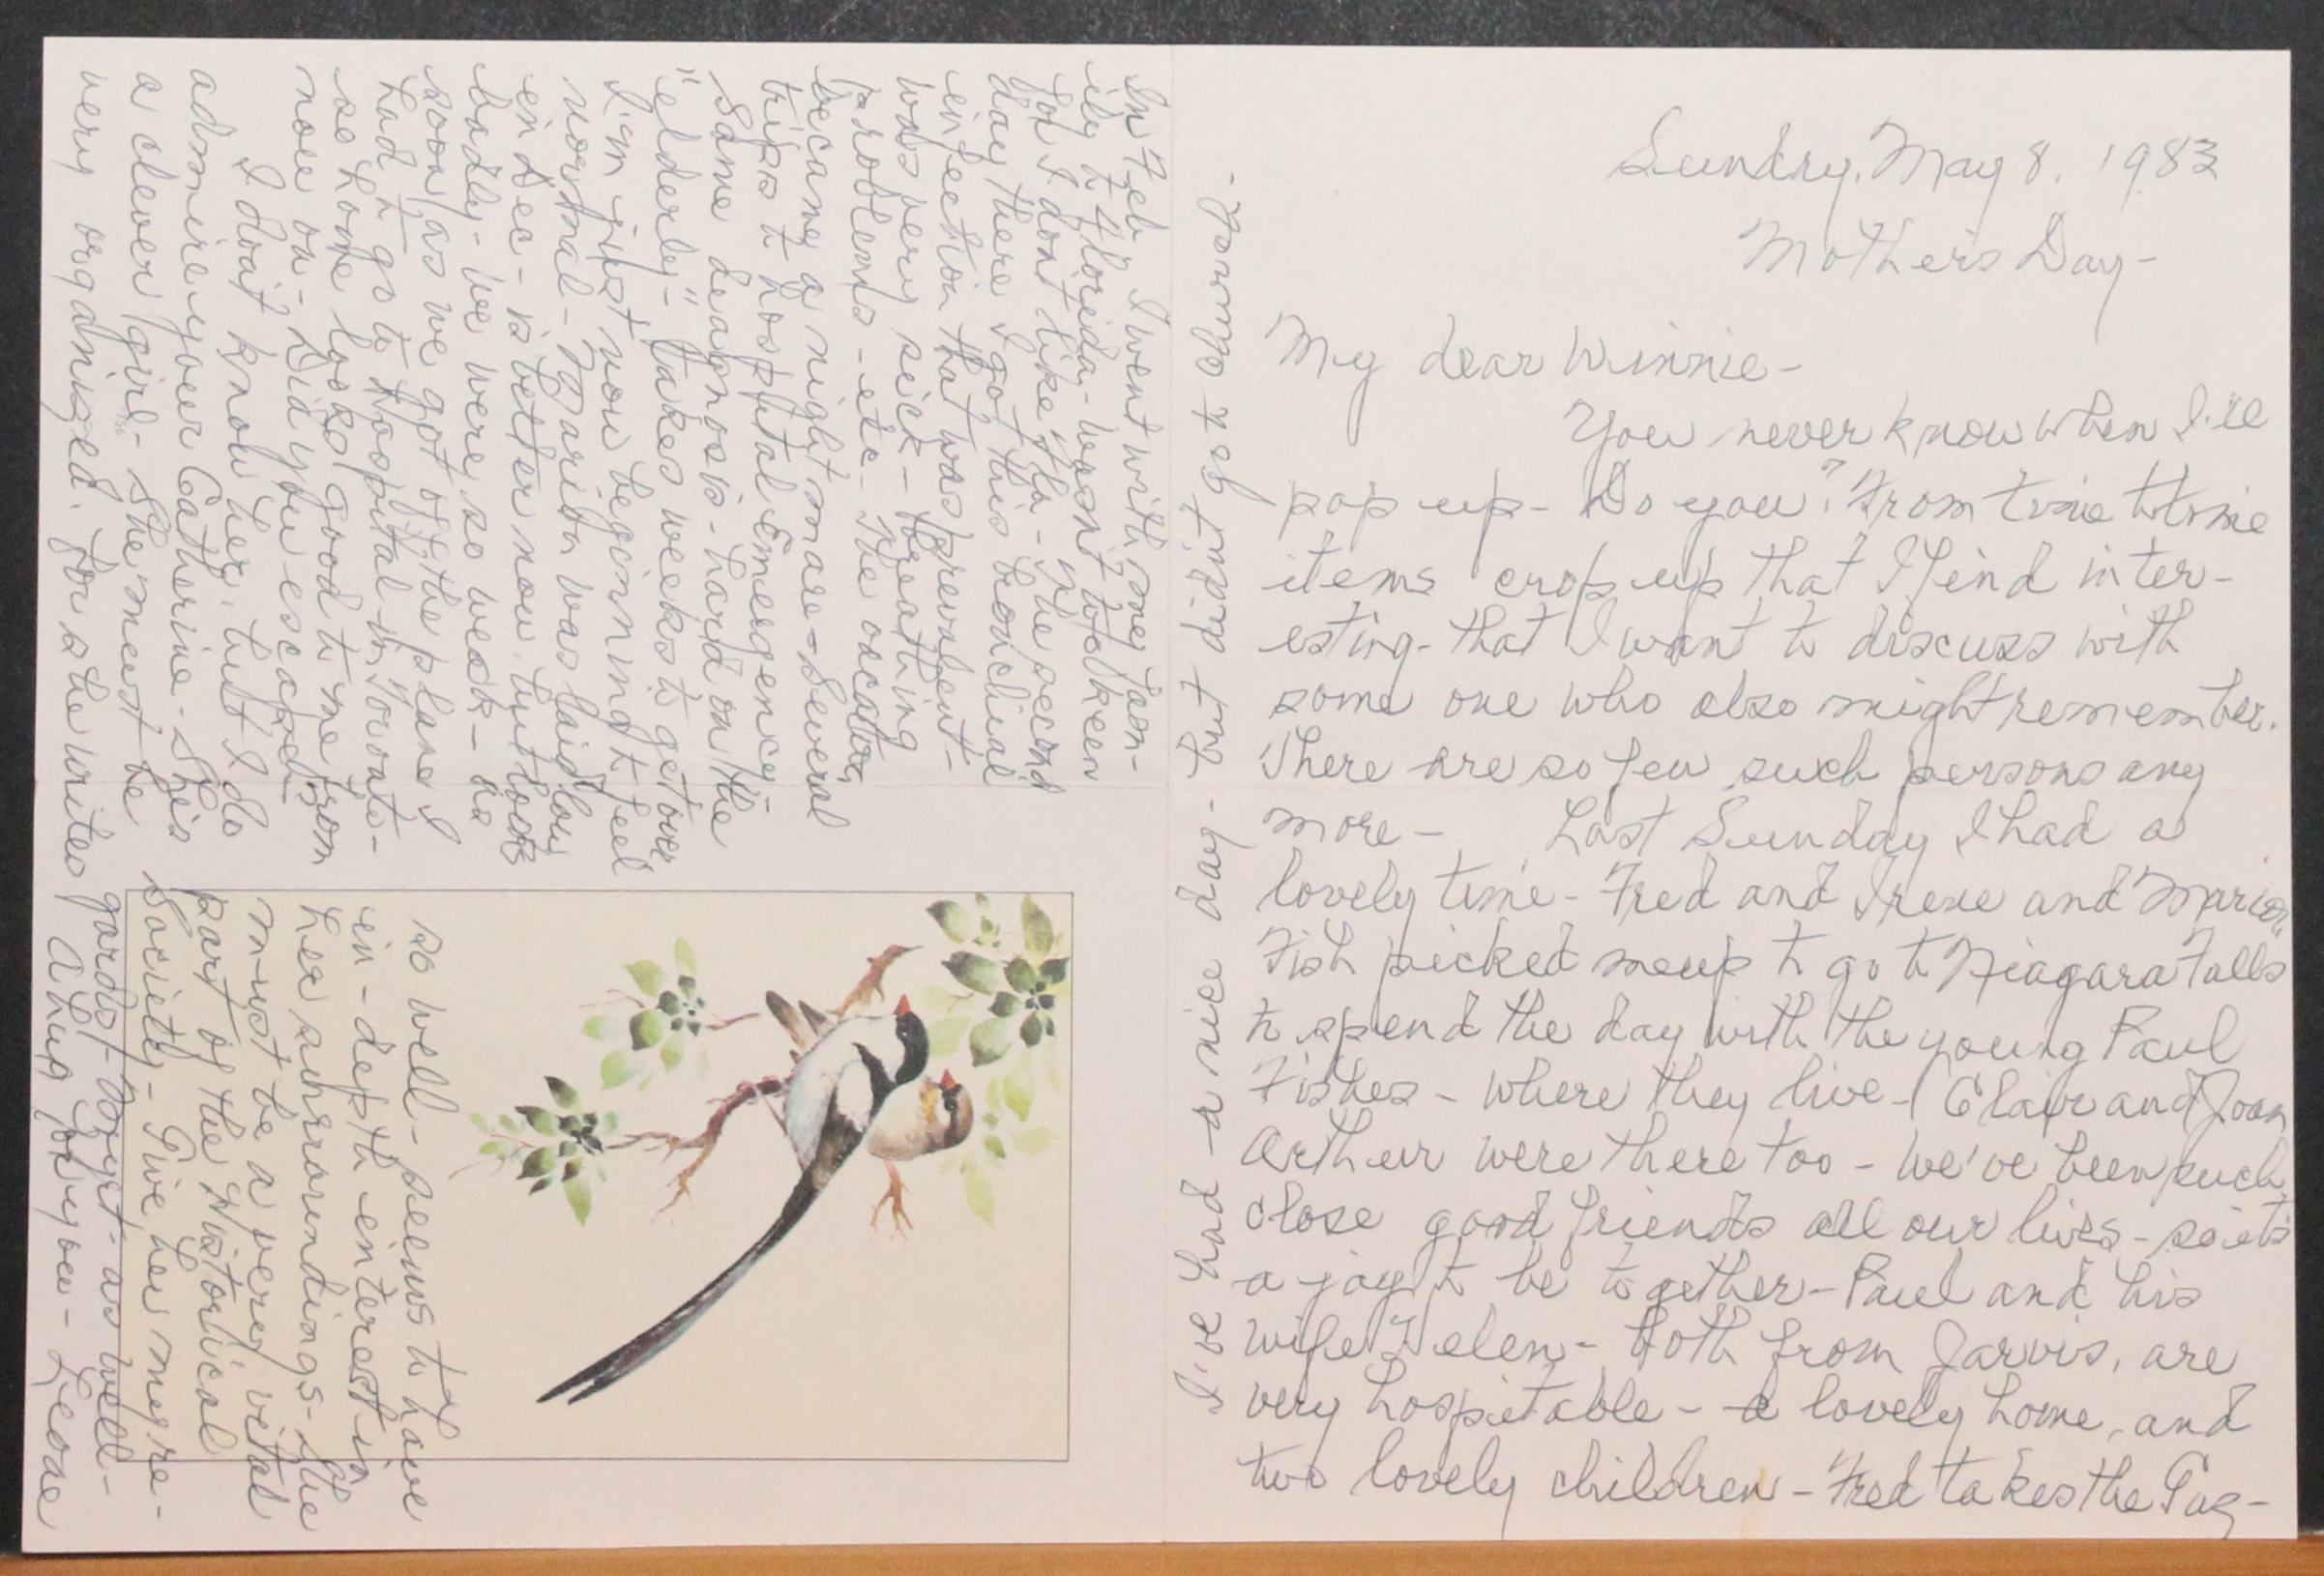 Sunday, May 8, 1983
Mother's Day-
My dear Winnie-
You never know when I'll
pop up- Do you? From time to time
items crop up that I find inter-
esting- that I want to discuss with
some one who also might remember.
There are so few such persons any
more- Last Sunday I had a
lovely time- Fred and Irene and Marion
Fish picked me up to go to Niagara Falls
to spend the day with the young Paul
Fishes- where they live- Clair and Joan
Arthur were there too- We've been such
close good friends all our lives- so it's
a joy to be together- Paul and his
wife Helen- both from Jarvis, are
very hospitable- a lovely home, and
two lovely children- Fred takes the
I've had a nice day- but didn't get to church-
In Feb I went with my fam-
ily to Florida- wasn't too keen
for I don't like Fla- The second
day there I got this bronchial
infection that was prevalent-
was very sick- breathing
problems- etc- The vacation
became a nightmare- several
trips to hospital Emergency-
Same diagnosis- hard on the
"elderly"- takes weeks to get over
I'm just now beginning to feel
normal- Marion was laid low
in Dec- is better now but looks
badly- We were so weak- as
soon as we got off the plane I
had to go to Hospital- in Toronto-
so home looks good to me from
now on- Did you escape?
I don't know her, but I do
admire your Catherine- She's
a clever girl- She must be
very organized. For she writes
so well- seems to have
in-depth interest in
her surroundings- She
must be a very vital
part of the Historical
Society- Give her my re-
gards- Boyet- as well-
A hug for you- Leone